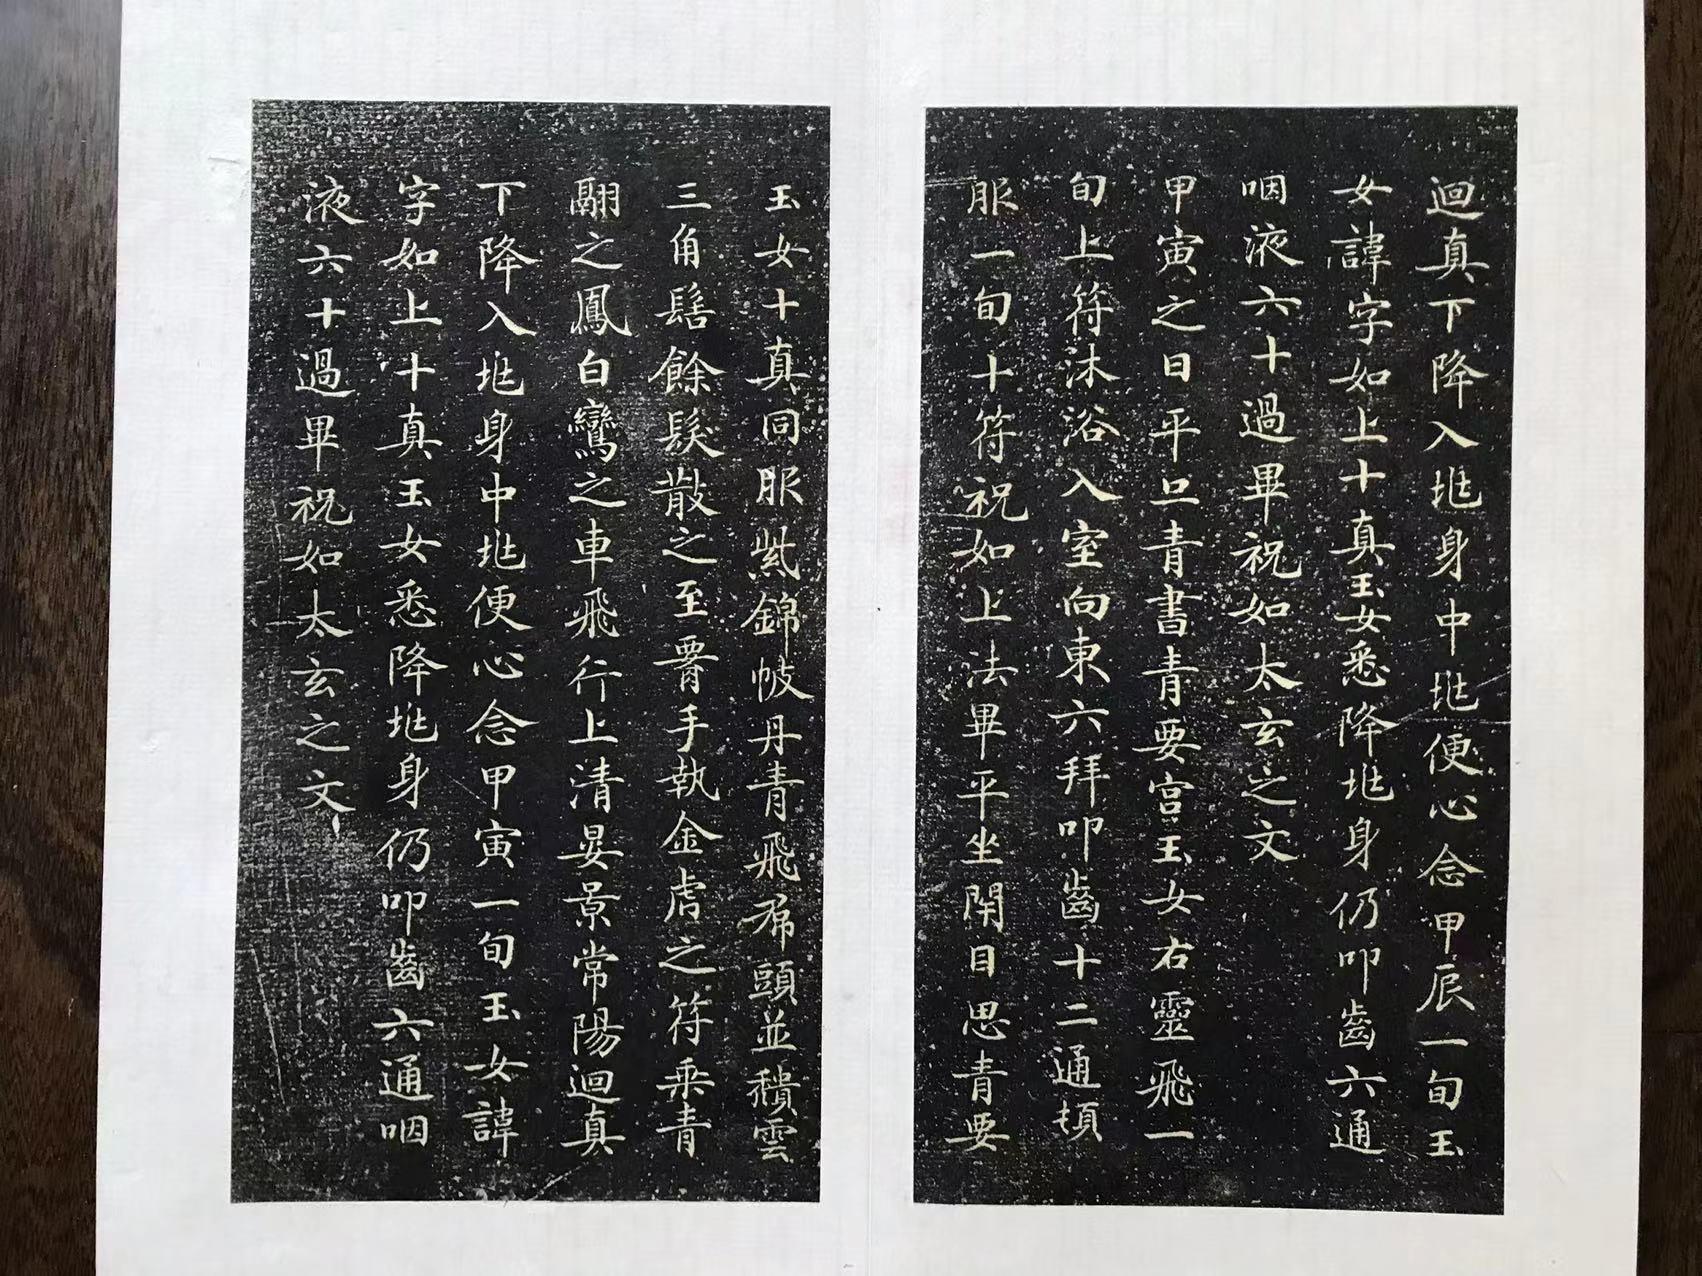 迴真下降入兆身中兆便心念甲辰一旬玉
女諱字如上十真玉女悉降兆身仍叩齒六通
咽液六十過畢祝如太玄之文
甲寅之日平旦青書青要宮玉女右靈飛一
旬上符沐浴入室向東六拜叩齒十二通頓
服一旬十符祝如上法畢平坐閉目思青要
玉女十真同服紫錦帔丹青飛帬頭並穨雲
三角髻餘髮散之至胷手執金虎之符乘青
翮之鳳白鸞之車飛行上清晏景常陽迴真
下降入兆身中兆便心念甲寅一旬玉女諱
字如上十真玉女悉降兆身仍叩齒六通咽
液六十過畢祝如太玄之文